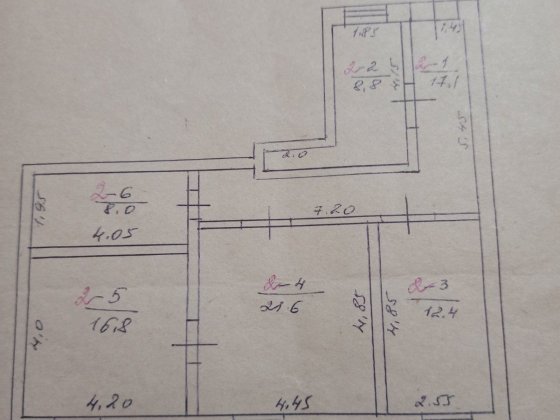 1.85
1.45
2-2
8,8
4.15
2-1
17,1
5.45
2.0
1,95
2-6
8.0
4.05
7.20
2-5
16,8
4,0
2-4
21.6
4,85
4,85
2-3
12.4
4.20
4.45
2.55